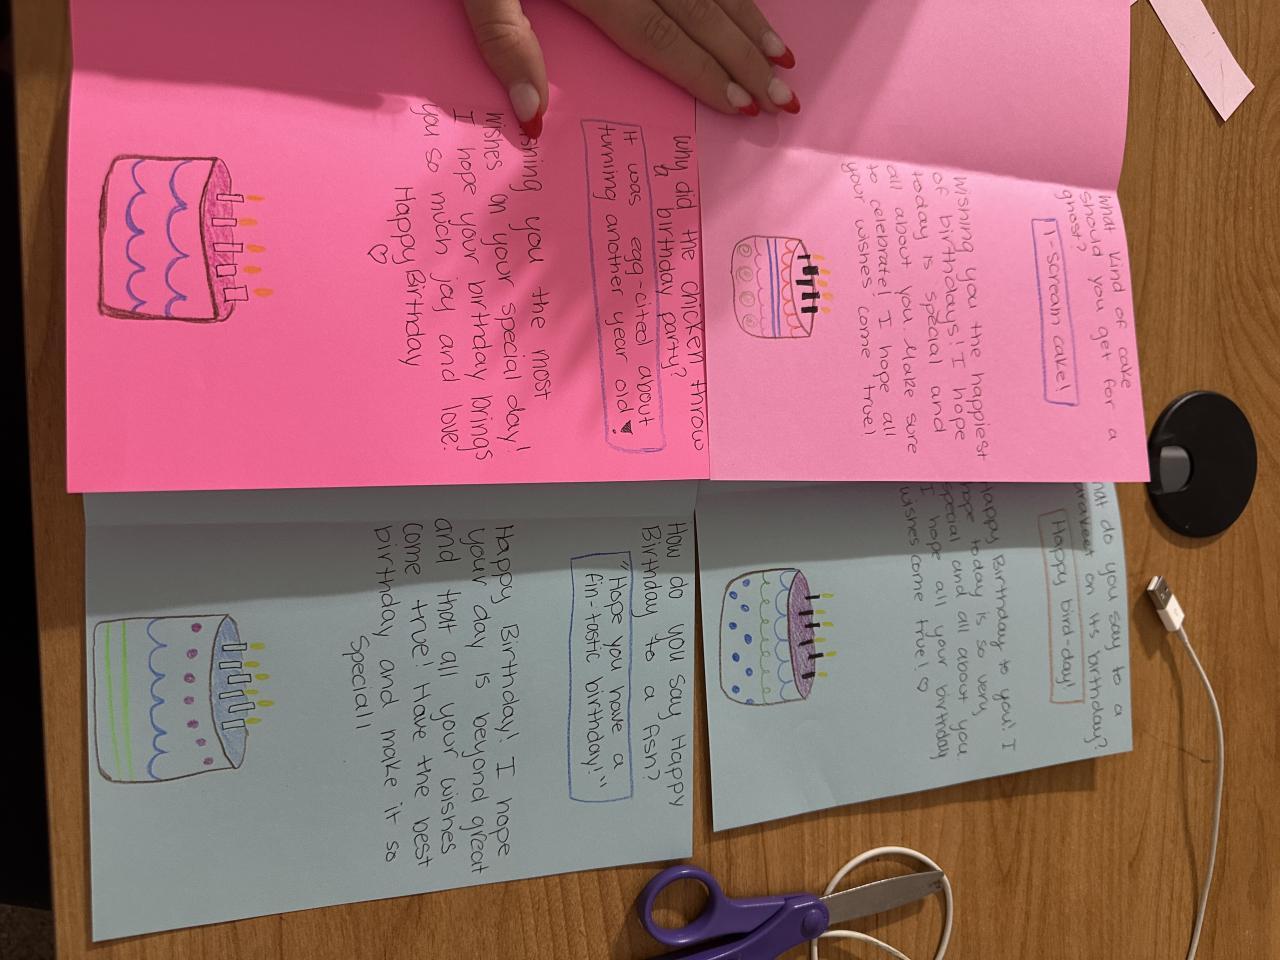 What kind of cake
should you get for a
ghost?
I-scream cake!
Wishing you the happiest
of birthdays! I hope
today is special and
all about you. Make sure
to celebrate! I hope all
your wishes come true!
do you say to a
on its birthday?
Happy bird-day!
Happy Birthday to you! I
hope today is so very
special and all about you.
I hope all your birthday
wishes come true!
Why did the chicken throw
a birthday party?
It was egg-cited about
turning another year old!
you the most
wishes on your special day!
I hope your birthday brings
you so much joy and love!
Happy Birthday
How do you say Happy
Birthday to a fish?
"Hope you have a
fin-tastic birthday!"
Happy Birthday! I hope
your day is beyond great
and that all your wishes
come true! Have the best
birthday and make it so
special!!